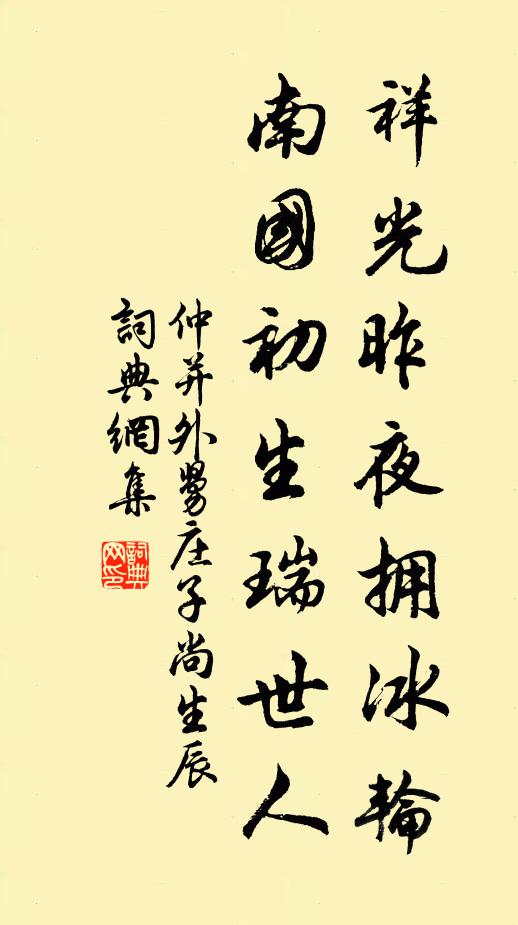 祥光昨夜拥冰輪
南國初生瑞世人
仲并外舅庄子尚生辰
詞典網集
詞典網印